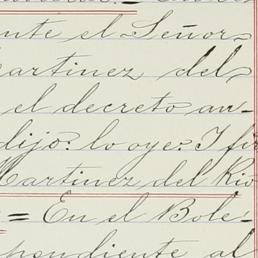 nte el Señor
artinez del
el decreto an-
dijo: lo oye: I fir
Martinez del Rio
= En el Bole-
pondiente al